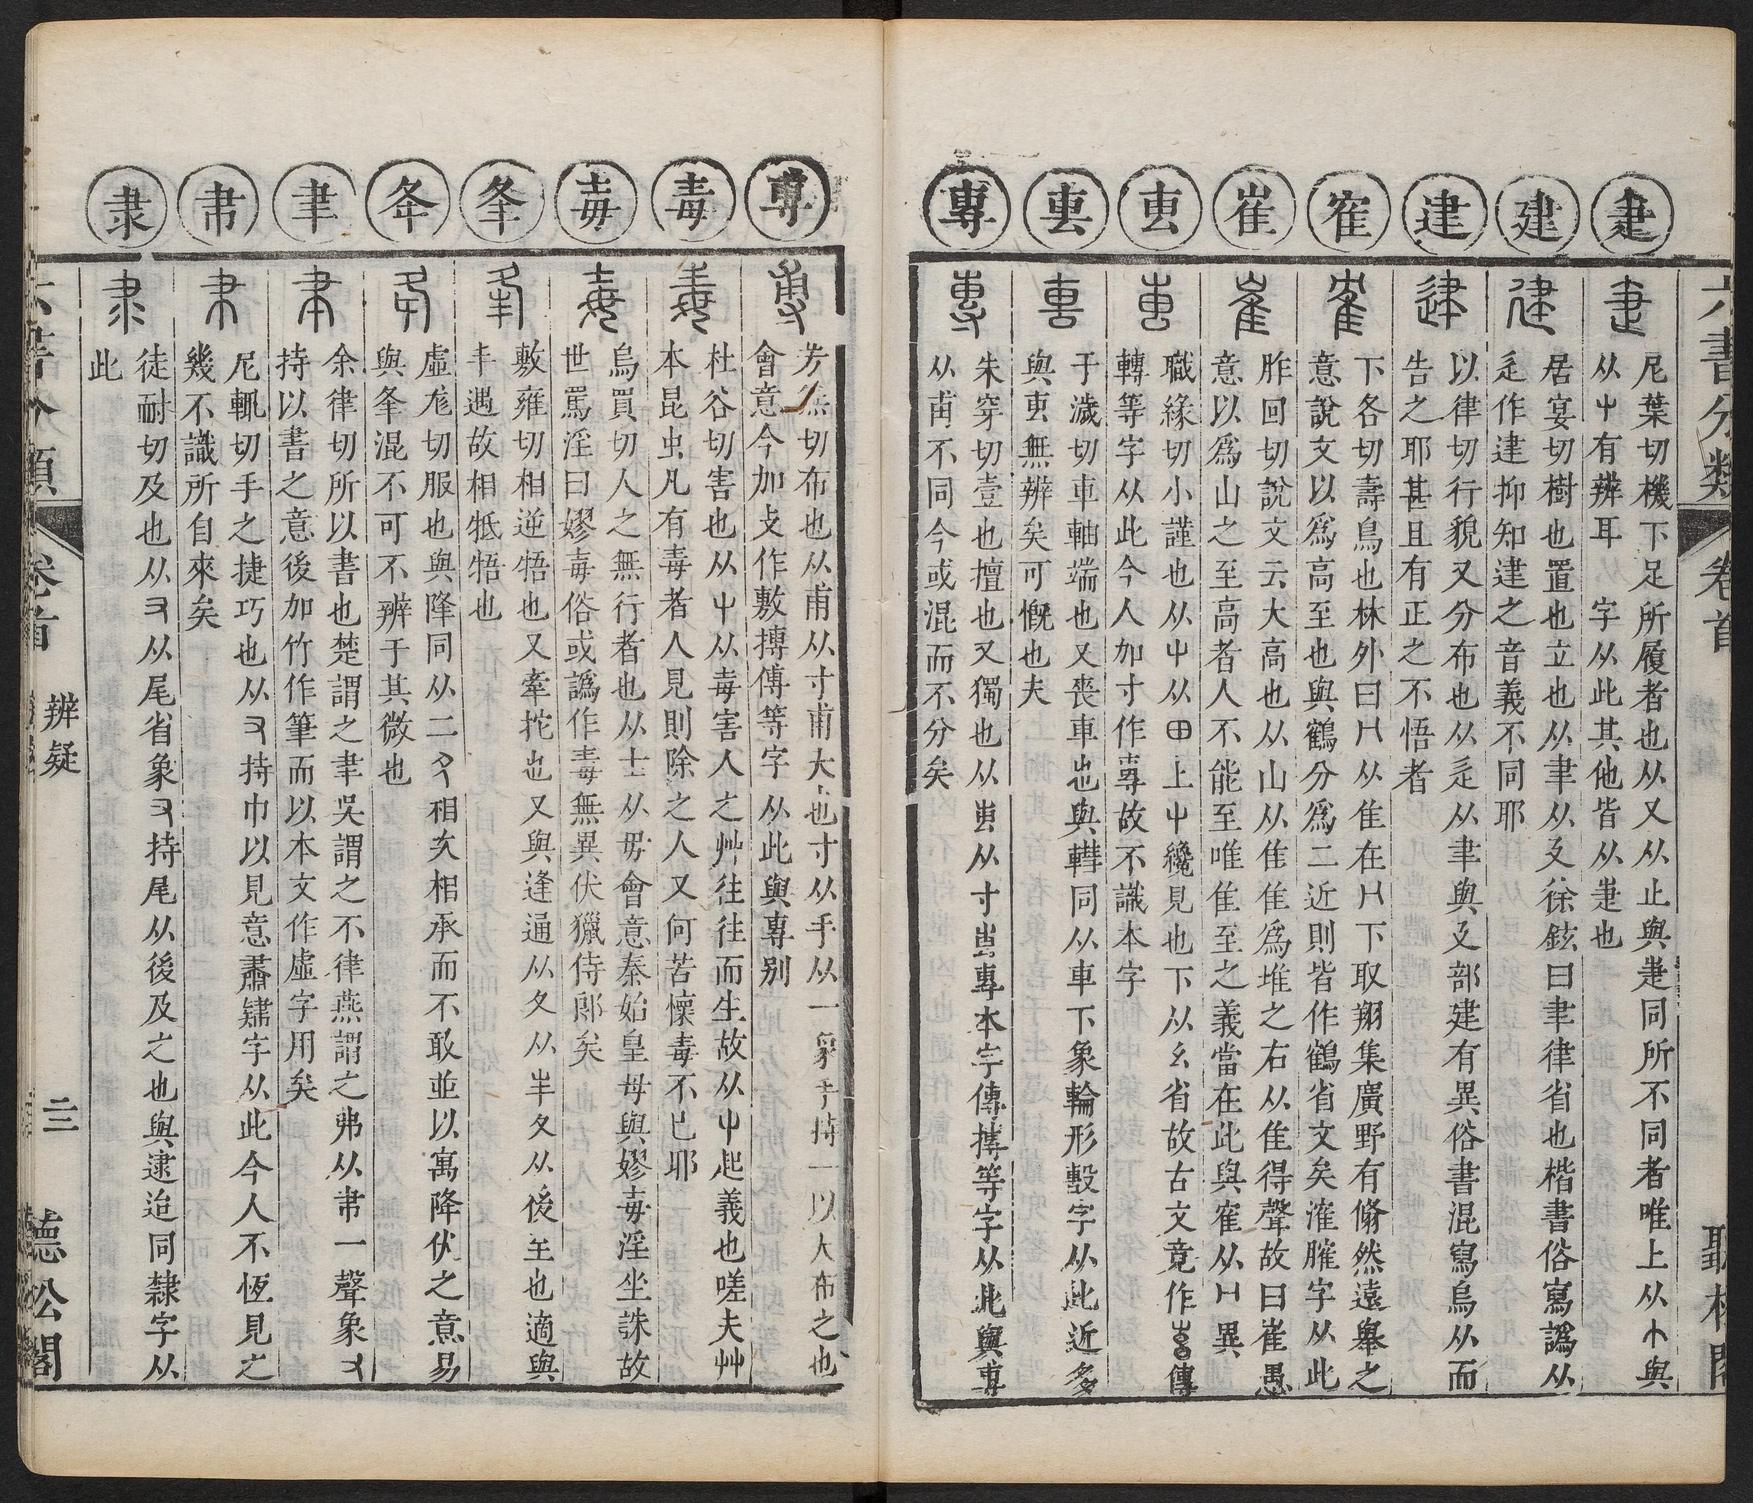 六書分類 卷首 聽松閣
疌 尼葉切機下足所履者也从又从止與疌同所不同者唯上从𠂇與
从屮有辨耳 字从此其他皆从疌也
建 居宴切樹也置也立也从聿从廴徐鉉曰聿律省也楷書俗寫譌从
辵作建抑知建之音義不同耶
以律切行貌又分布也从辵从聿與廴部建有異俗書混寫烏从而
告之耶甚且有正之不悟者
隺 下各切壽鳥也林外曰冂从隹在冂下取翔集廣野有翛然遠舉之
意說文以爲高至也與鶴分爲二近則皆作鶴省文矣滩臛字从此
崔 胙回切說文云大高也从山从隹隹爲堆之右从隹得聲故曰崔愚
意以爲山之至高者人不能至唯隹至之義當在此與隺从冂異
叀 職緣切小謹也从屮从田上屮纔見也下从幺省故古文竟作 傳
轉等字从此今人加寸作專故不識本字
軎 于濊切車軸端也又喪車也與轊同从車下象輪形毄字从此近多
與叀無辨矣可慨也夫
專 朱穿切壹也擅也又獨也从叀从寸叀專本字傳摶等字从此與尃
从甫不同今或混而不分矣
尃 芳無切布也从甫从寸甫大也寸从手从一象手持一以大布之也
會意今加攴作敷搏傅等字从此與專别
毒 杜谷切害也从屮从毒害人之艸往往而生故从屮起義也嗟夫艸
本昆虫凡有毒者人見則除之人又何苦懷毒不已耶
毐 烏買切人之無行者也从士从毋會意秦始皇母與嫪毐淫坐誅故
世罵淫曰嫪毐俗或譌作毒無異伏獵侍郎矣
夆 敷雍切相逆啎也又牽挓也又與逢通从夂从丰夂从後至也適與
丰遇故相牴牾也
夅 虛尨切服也與降同从二夂相㐅相承而不敢並以寓降伏之意易
與夆混不可不辨于其微也
聿 余律切所以書也楚謂之聿吳謂之不律燕謂之弗从肀一聲象彐
持以書之意後加竹作筆而以本文作虛字用矣
肀 尼輒切手之捷巧也从彐持巾以見意肅䎘字从此今人不恆見之
幾不識所自來矣
隶 徒耐切及也从彐从尾省象彐持尾从後及之也與逮迨同隸字从
此
六書分類 卷首 辨疑 三 聽松閣